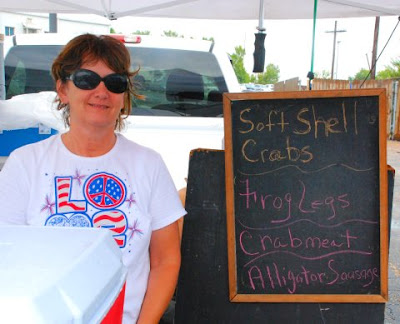 LO
Soft Shell
Crabs
Frog Legs
Crabmeat
Alligator Sausage